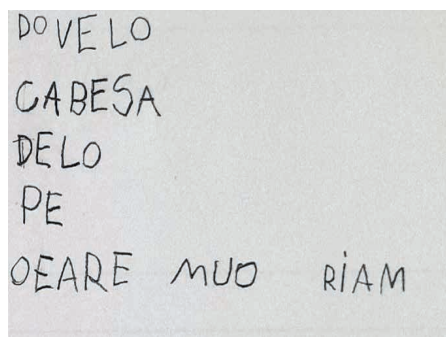 DOVELO
CABESA
DELO
PE
OEARE MUO RiAM